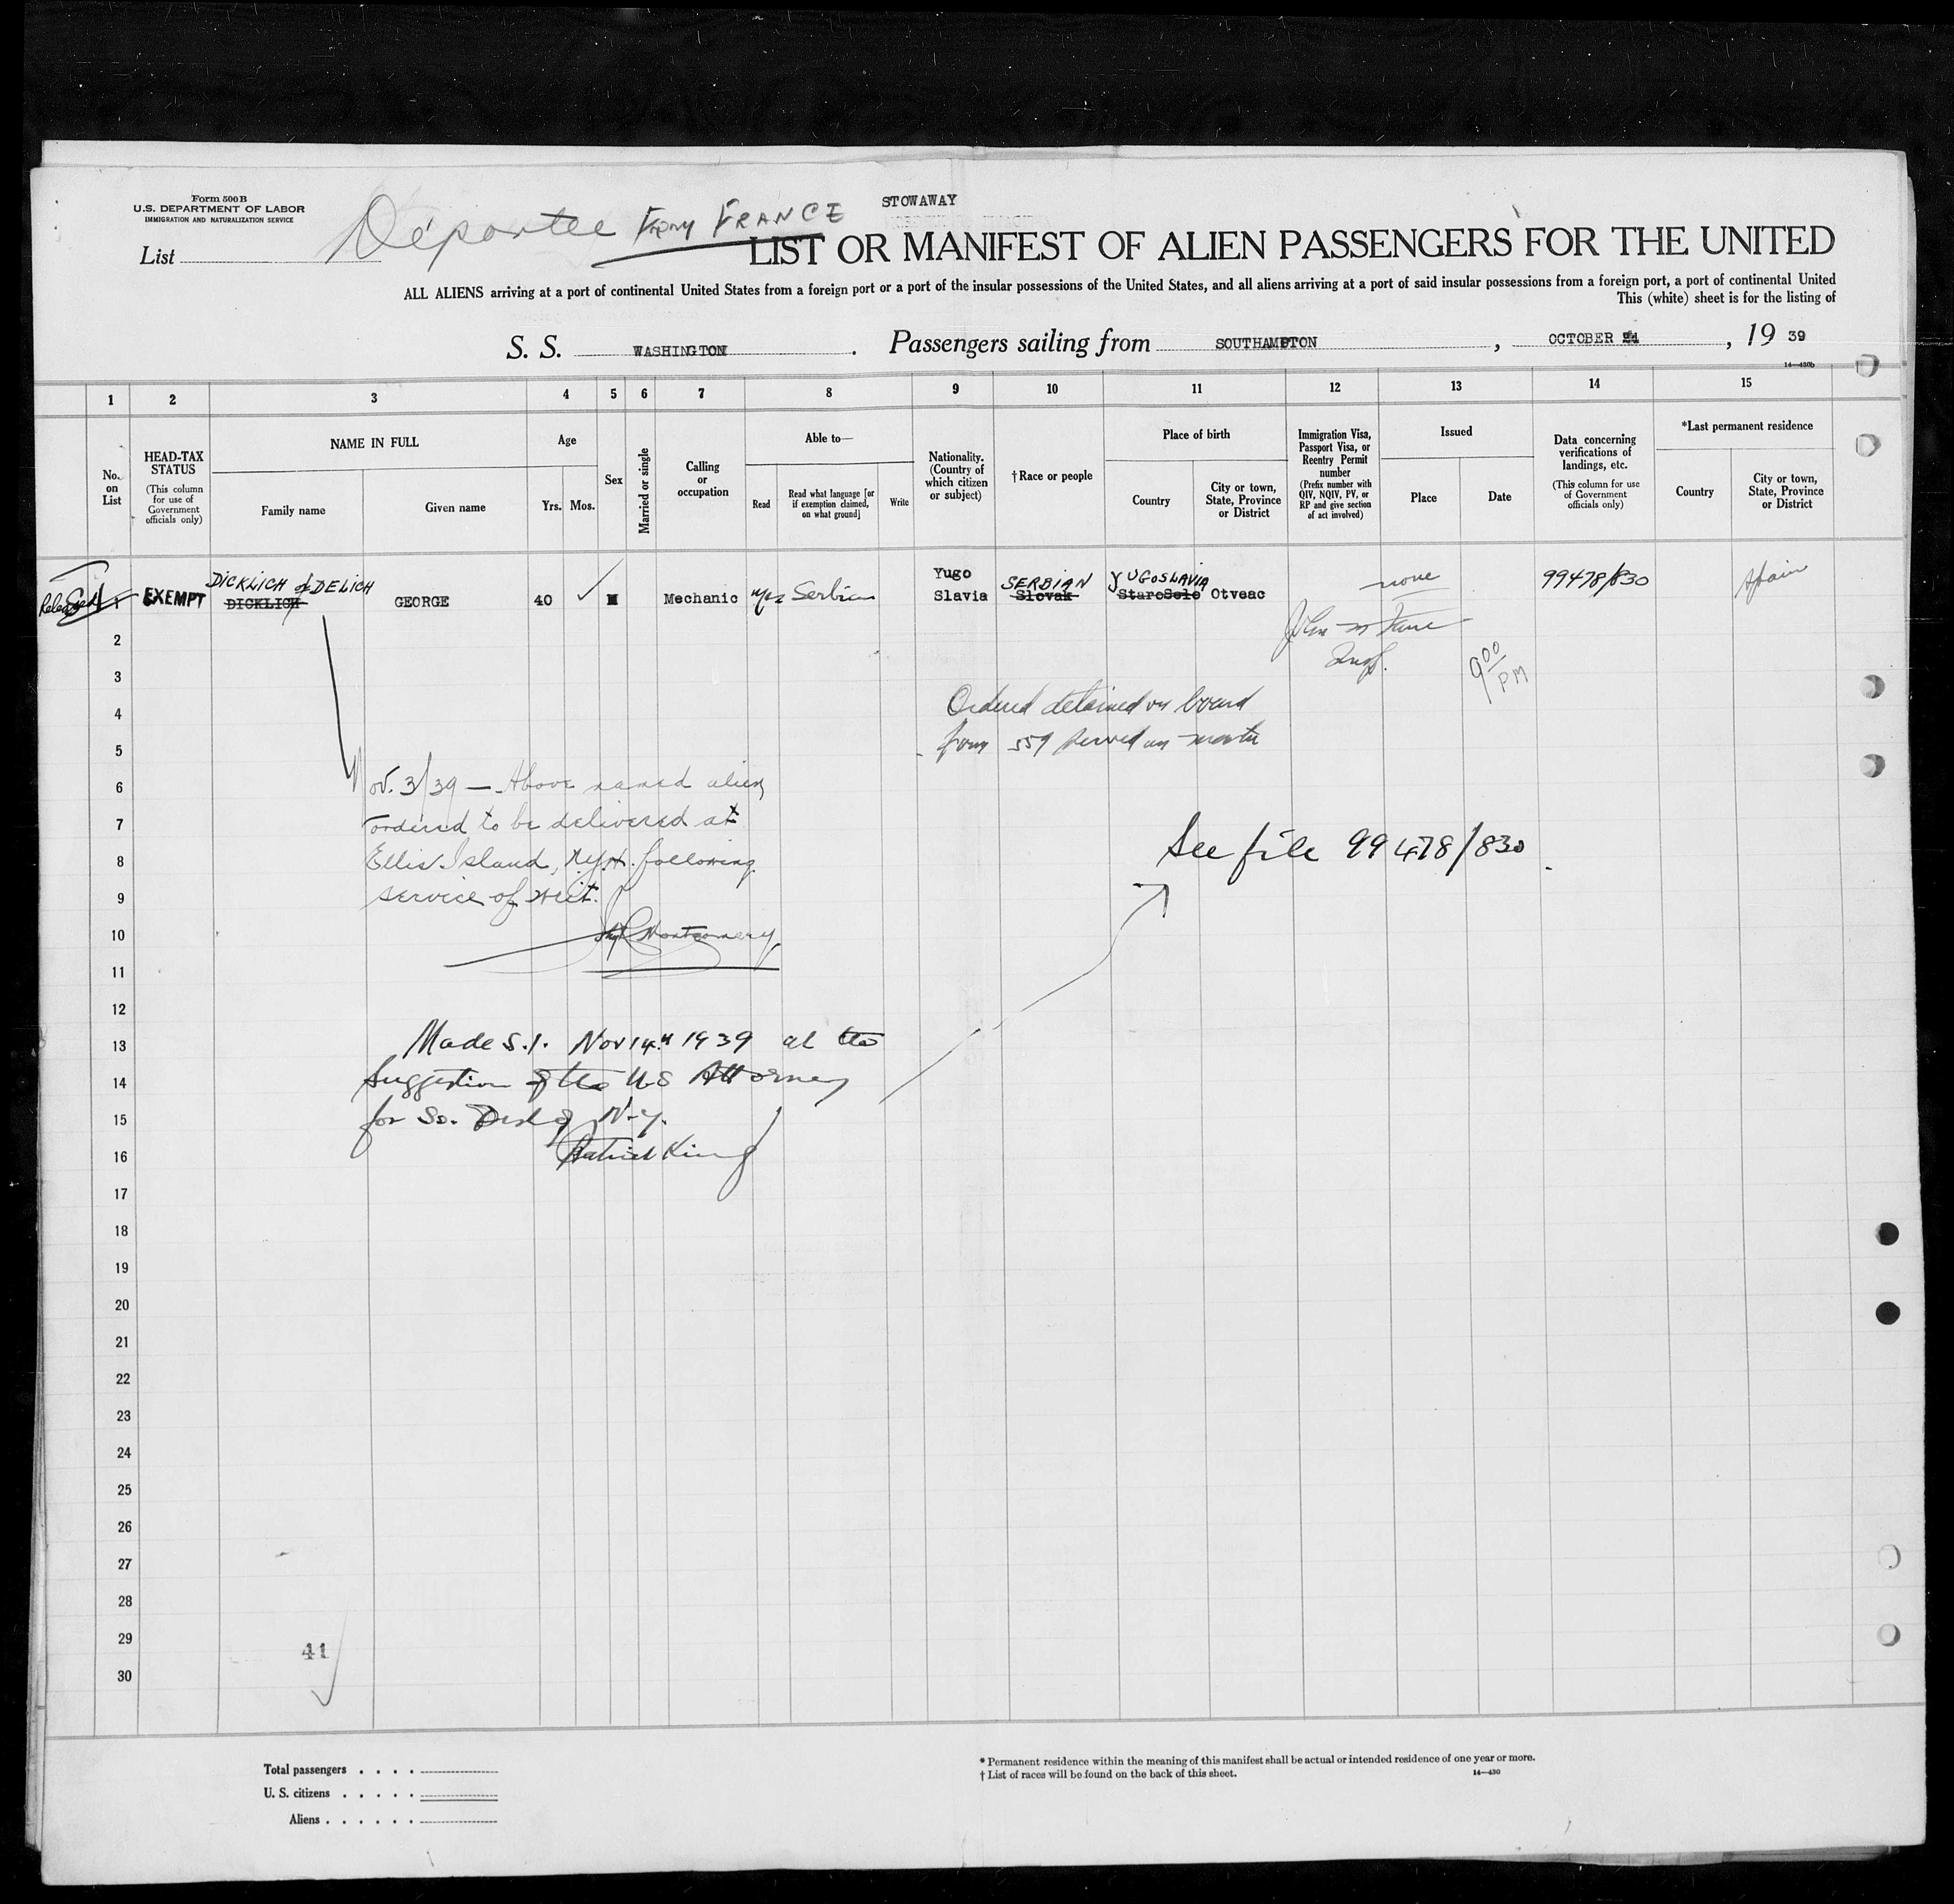 Form 500 B
U.S. DEPARTMENT OF LABOR
IMMIGRATION AND NATURALIZATION SERVICE
Deportee From FRANCE
STOWAWAY
List
LIST OR MANIFEST OF ALIEN PASSENGERS FOR THE UNITED
ALL ALIENS arriving at a port of continental United States from a foreign port or a port of the insular possessions of the United States, and all aliens arriving at a port of said insular possessions from a foreign port, a port of continental United
This (white) sheet is for the listing of
S. S. WASHINGTON . Passengers sailing from SOUTHAMPTON , OCTOBER , 19 39
14—430b
1 2 3 4 5 6 7 8 9 10 11 12 13 14 15
No. on List
HEAD-TAX STATUS
(This column for use of Government officials only)
NAME IN FULL
Family name
Given name
Age
Yrs.
Mos.
Sex
Married or single
Calling or occupation
Able to—
Read
Read what language [or if exemption claimed, on what ground]
Write
Nationality. (Country of which citizen or subject)
†Race or people
Place of birth
Country
City or town, State, Province or District
Immigration Visa, Passport Visa, or Reentry Permit number
(Prefix number with QIV, NQIV, PV, or RP and give section of act involved)
Issued
Place
Date
Data concerning verifications of landings, etc.
(This column for use of Government officials only)
*Last permanent residence
Country
City or town, State, Province or District
DICKLICH DELICH Yugo SERBIAN YUGOSLAVIA none 99478/830 Spain
Released 1 EXEMPT DICKLICH GEORGE 40 M Mechanic yes Serbian Slavia Slovak StaroSelo Otveac
2
3
9 00 PM
4
Ordered detained on board
5
form 559 served on master
6
Nov. 3/39 — Above named alien
7
ordered to be delivered at
8
Ellis Island, N.Y.H. following
See file 99478/830
9
service of writ.
10
Montgomery
11
12
13
Made S.I. Nov 14th 1939 at the
14
Suggestion of the U S Attorney
15
for So. Dist of N.Y.
16
Patrick King
17
18
19
20
21
22
23
24
25
26
27
28
29
41
30
Total passengers
U. S. citizens
Aliens
* Permanent residence within the meaning of this manifest shall be actual or intended residence of one year or more.
† List of races will be found on the back of this sheet.
14—430